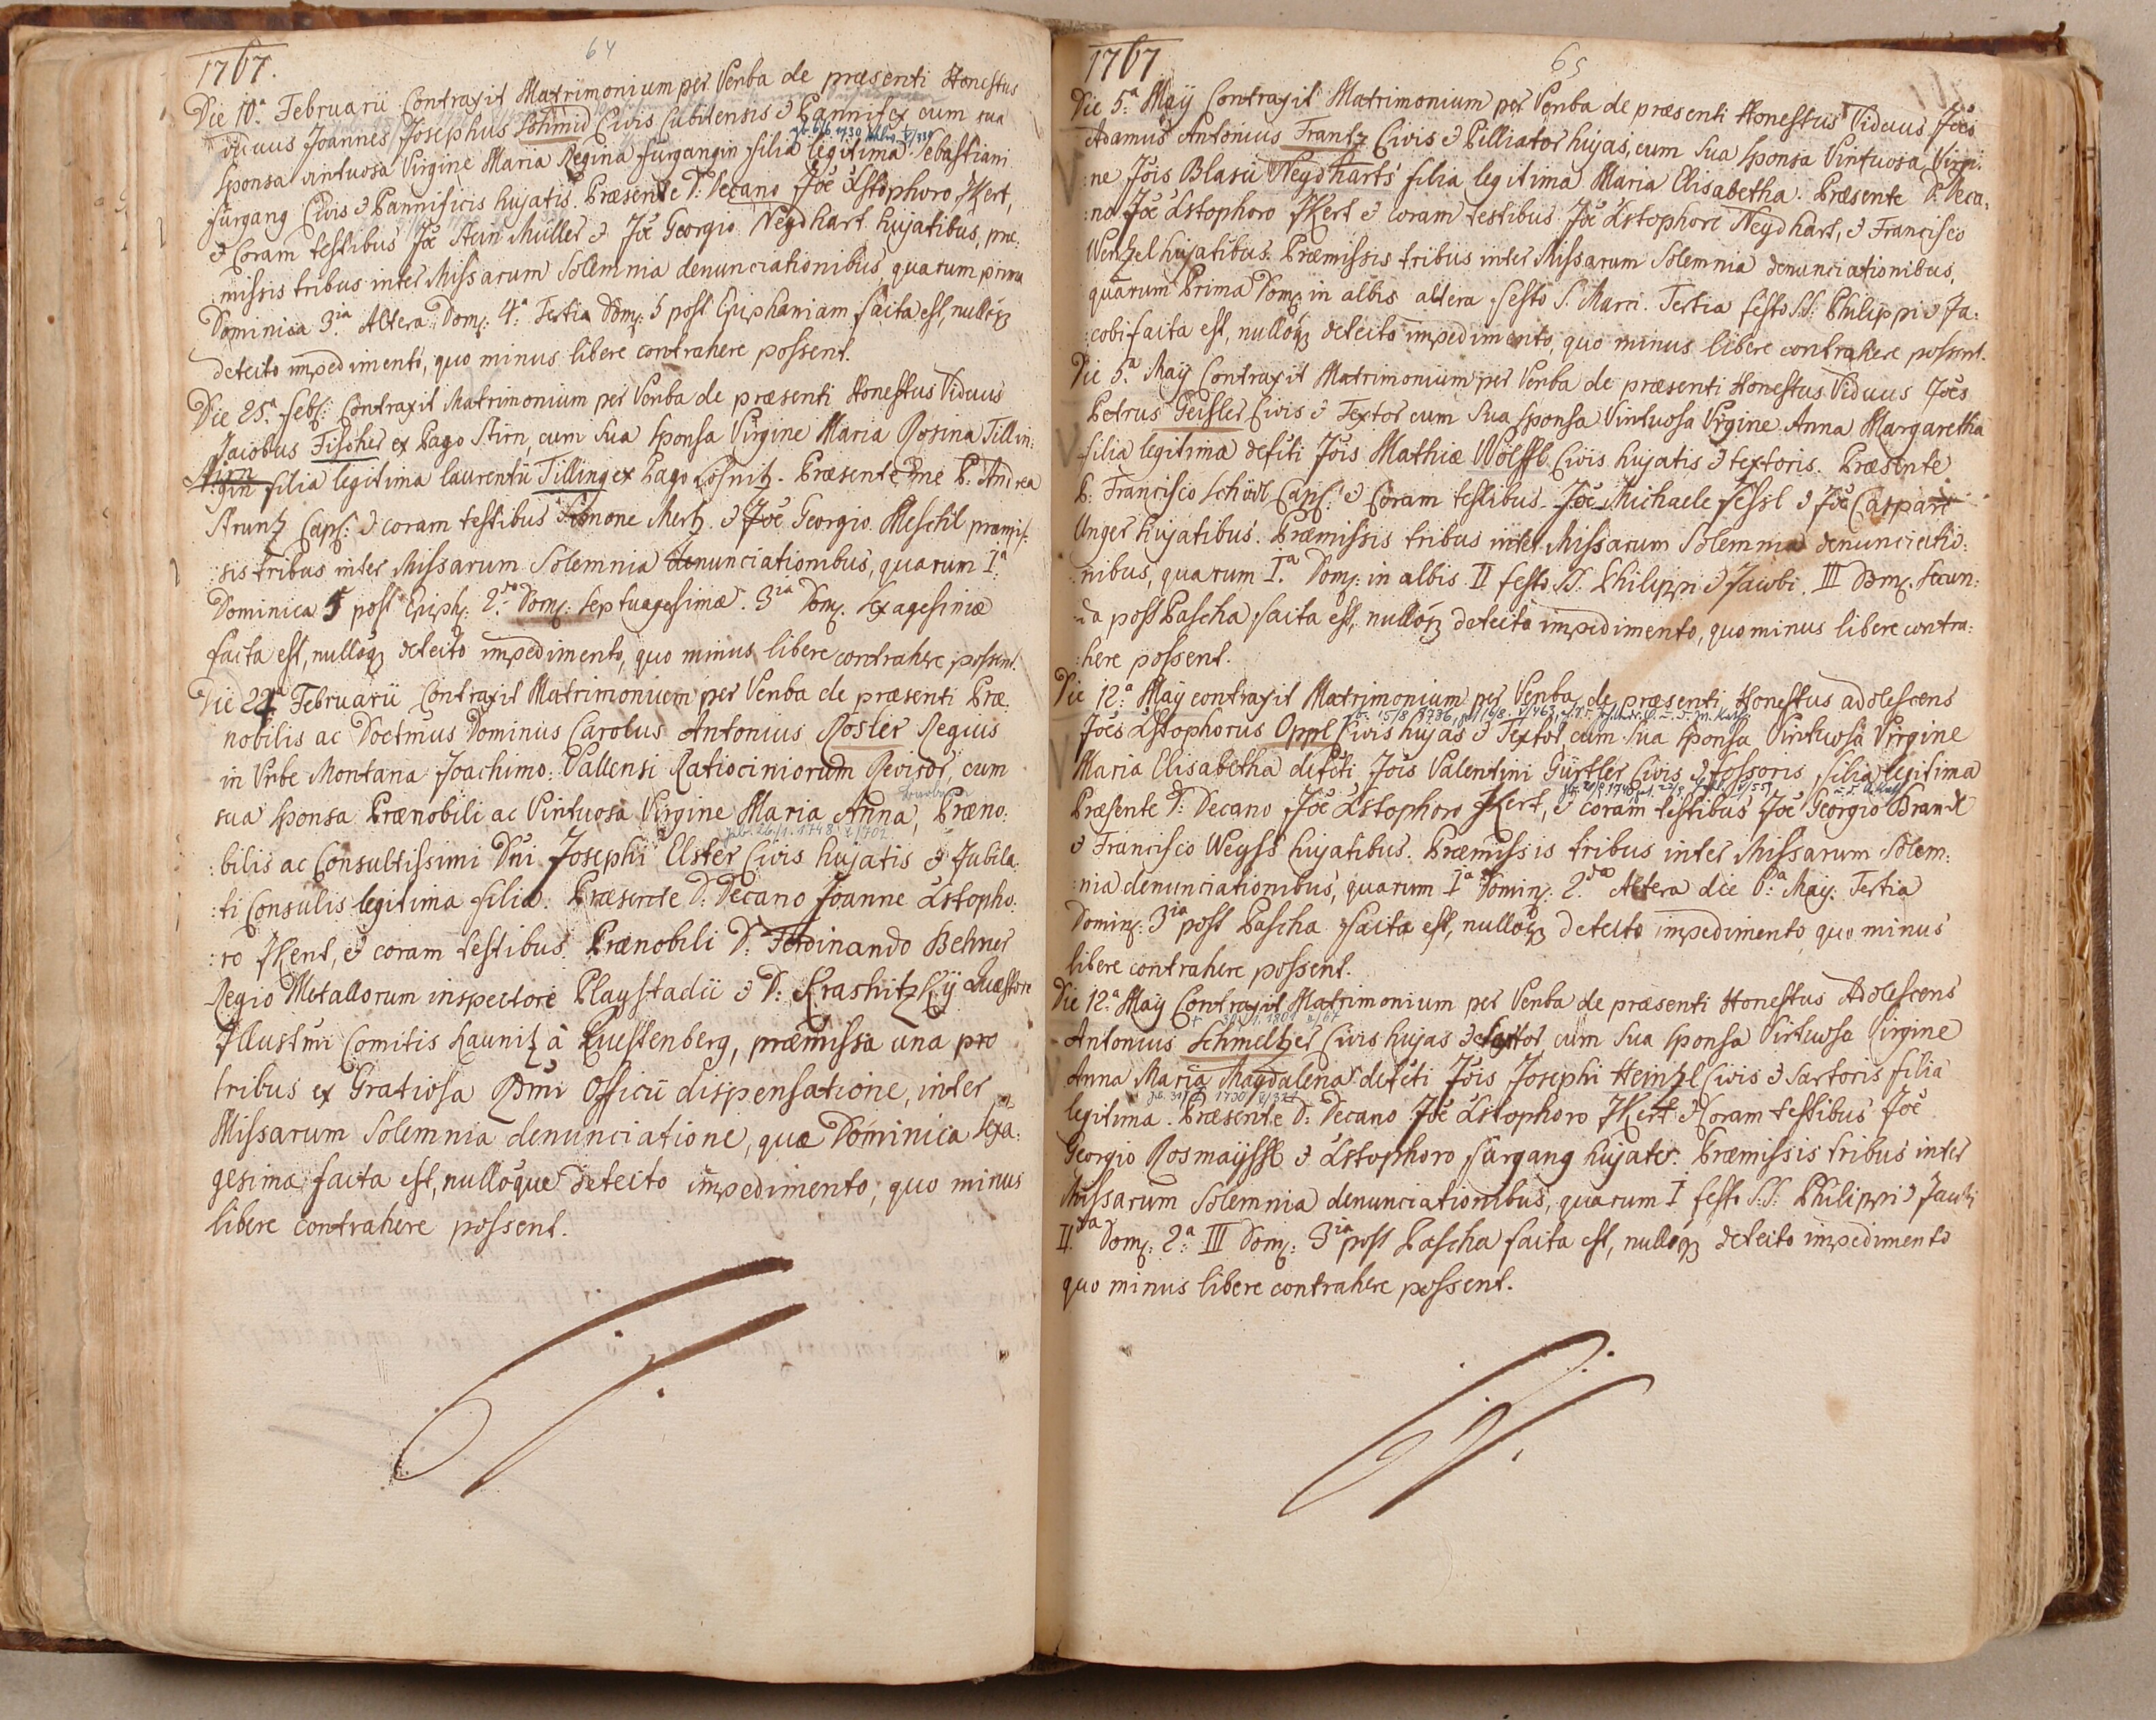 1767.
64
Die 10.ª Februarii Contraxit Matrimonium per Verba de præsenti Honestus
viduus Joannes Josephus Schmid Civis Cubitensis & Pannifex cum sua
sponsa virtuosa Virgine Maria Regina Fürgangin filia legitima Sebastiani
Fürgang Civis & Pannificis hujatis. Præsente D: Decano Joe Xstophoro Ikert,
& Coram testibus Joe Stein Müller & Joe Georgio Neydhart hujatibus, præ:
:missis tribus inter Missarum Solemnia denunciationibus, quarum prima
Dominica 3.ia Altera Dom: 4.ª Tertia Dom: 5 post Epiphaniam facta est, nulloq3
detecto impedimento, quo minus libere contrahere possent.
Die 25.ª Feb: Contraxit Matrimonium per Verba de præsenti Honestus Viduus
Jacobus Fischer ex Pago Stirn, cum Sua Sponsa Virgine Maria Rosina Tillin:
:gin filia legitima Laurentii Tilling ex Pago Losnitz. Præsente me P. Andrea
Struntz Cap: & coram testibus Simone Mertz & Joe Georgio Meschil, præmis:
:sis tribus inter Missarum Solemnia denunciationibus, quarum I.ª
Dominica 5 post Epiph: 2.da Dom: Septuagesimæ. 3.ia Dom. Sexagesimæ
facta est, nulloq3 detecto impedimento, quo minus libere contrahere possent.
Die 24.ª Februarii Contraxit Matrimonium per Verba de præsenti Præ:
nobilis ac Doctmus Dominus Carolus Antonius Rosler Regius
in Urbe Montana Joachimo: Vallensi Ratiociniorum Revisor, cum
sua Sponsa Prænobili ac Virtuosa Virgine Maria Anna, Præno:
:bilis ac Consultissimi Dni Josephi Elster Civis hujatis & Jubila:
:ti Consulis legitima filia. Præsente D: Decano Joanne Xstopho:
:ro Ikert, & coram testibus Prænobili D: Ferdinando Behner
Regio Metallorum inspectore Playstadii & D: Krashitzkÿ Quæstore
Illustmi Comitis Kaunitz à Questenberg, præmissa una pro
tribus ex Gratiosa Rmi Officii dispensatione, inter
Missarum Solemnia denunciatione, quæ Dominica Sexa:
gesima facta est, nullóque detecto impedimento, quo minus
libere contrahere possent.
1767
65
Die 5.ª Maÿ Contraxit Matrimonium per Verba de præsenti Honestus Viduus Joes
Adamus Antonius Frantz Civis & Pelliator hujas, cum Sua Sponsa Virtuosa Virgi:
:ne Jois Blasii Neydharts filia legitima Maria Elisabetha. Præsente D: Deca:
:no Joe Xstophoro Ikert & coram testibus Joe Xstophoro Neydhart, & Francisco
Wentzel hujatibus. Præmissis tribus inter Missarum Solemnia denunciationibus,
quarum Prima Dom: in albis altera festo S. Marci. Tertia festo S.S. Philippi & Ja:
:cobi facta est, nulloq3 detecto impedimento, quo minus libere contrahere possent.
Die 5.ª Maÿ Contraxit Matrimonium per Verba de præsenti Honestus Viduus Joes
Petrus Geisler Civis & Textor cum Sua Sponsa Virtuosa Vrgine Anna Margaretha
filia legitima defcti Jois Mathiæ Wölffl Civis hujatis & textoris. Præsente
P. Francisco Schödl Cap: & Coram testibus Joe Michaele Fessl & Joe Caspare
Unger hujatibus. Præmissis tribus inter Missarum Solemnia denunciatio:
:nibus, quarum I.ª Dom: in albis II festo SS: Philippi & Jacobi. III Dom. Secun:
:da post Pascha facta est, nulloq3 detecto impedimento, quo minus libere contra:
:here possent.
Die 12.ª Maÿ contraxit Matrimonium per Verba de præsenti Honestus adolescens
Joes Xstophorus Oppl Civis hujas & Textor, cum Sua Sponsa Virtuosa Vrgine
Maria Elisabetha defcti Jois Valentini Gürtler Civis & fossoris filia legitima
Præsente D: Decano Joe Xstophoro Ikert, & coram testibus Joe Georgio Brandl
& Francisco Weyss hujatibus. Præmissis tribus inter Missarum Solem:
:nia denunciationibus, quarum I.ª Domin: 2.da Altera die 6.ª Maÿ. Tertia
Domin: 3ia post Pascha facta est, nulloq3 detecto impedimento quo minus
libere contrahere possent.
Die 12.ª Maÿ Contraxit Matrimonium per Verba de præsenti Honestus Adolescens
Antonius Schmeltzer Civis hujas & Sartor cum Sua Sponsa Virtuosa Virgine
Anna Maria Magdalena defcti Jois Josephi Heintzl Civis & Sartoris filia
legitima. Præsente D: Decano Joe Xstophoro Ikert & Coram testibus Joe
Georgio Rosmaÿssl & Xstophoro Fürgang hujates. Præmissis tribus inter
Missarum Solemnia denunciationibus, quarum I festo S.S: Philippi & Jacobi
II.da Dom: 2.ª III Dom: 3ia post Pascha facta est, nulloq3 detecto impedimento
quo minus libere contrahere possent.